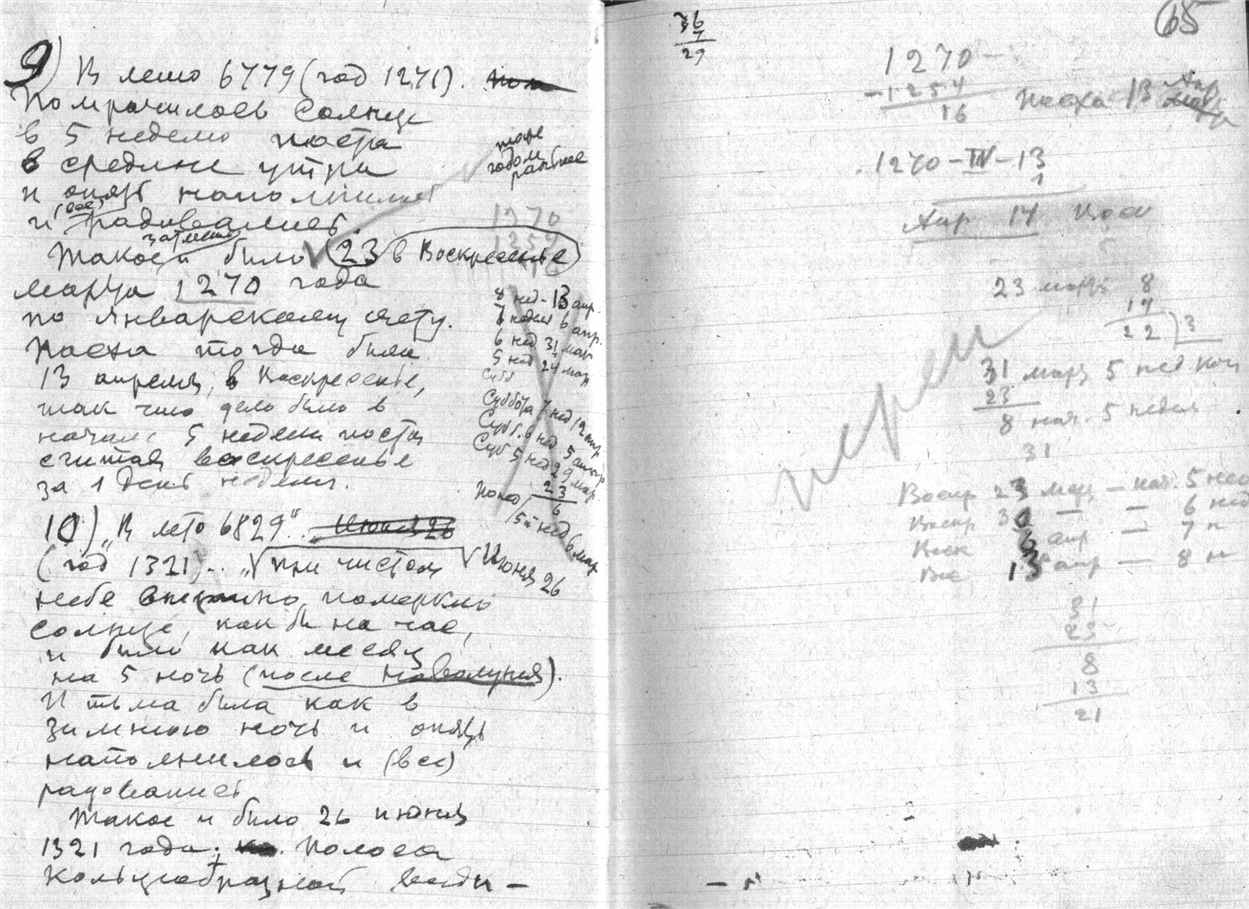 9) В лето 6779 (год 1271).
Помрачилось Солнце
в 5 неделю поста
в средине утра
и опять наполнилось
и (все) радовались.
Такое затмение и было 23 в Воскресенье
марта 1270 года
по январскому счету.
Пасха тогда была
13 апреля, в Воскресенье,
так что дело было в
начале 5 недели поста
считая воскресенье
за 1 день недели.
тоже
годом
раньше
1270
1254
16
8 нед - 13 апр.
7 неделя 6 апр.
6 нед 31 мар
5 нед 24 мар
Субб
Суббота 7 нед 12 апр
Субб. 6 нед 5 апр
Суб 5 нед 29 мар
23
6
10) „В лето 6829“ Июня 26
(год 1321)... „при чистом Июня 26
небе внезапно померкло
солнце, как бы на час,
и было как месяц
на 5 ночь (после новолуния).
И тьма была как в
зимнюю ночь и опять
наполнилось и (все)
радовались
Такое и было 26 июня
1321 года. Полоса
кольцеобразной
36
7
29
65
1270
- 1254
16
Пасха 13 Апр
1270-IV-13
1
Апр 14
23 марта 8
14
22 3
31 март 5 нед
23
8 нач. 5 недели
31
перен
Воскр 23 мар — нач. 5 нед
Воскр 30 — — 6 нед
Воск 6 апр — 7 н
Вос 13 апр — 8 н
31
23
8
13
21